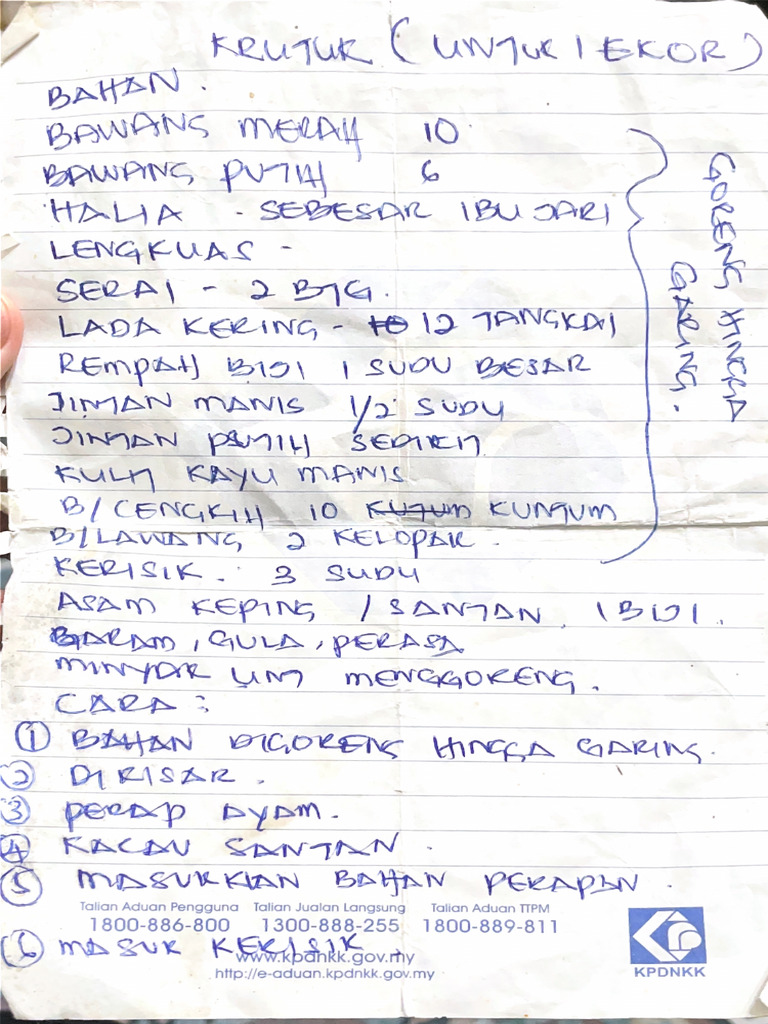 KRUTUK (UNTUK 1 EKOR)
BAHAN.
BAWANG MERAH 10
BAWANG PUTIH 6
HALIA - SEBESAR IBU JARI
LENGKUAS -
SERAI - 2 BTG.
LADA KERING - 10 12 TANGKAI
REMPAH BIJI 1 SUDU BESAR
JINTAN MANIS 1/2 SUDU
JINTAN PUTIH SEDIKIT
KULIT KAYU MANIS
B/CENGKIH 10 KUTUM KUNTUM
B/LAWANG 2 KELOPAK.
GORENG HINGGA
GARING.
KERISIK. 3 SUDU
ASAM KEPING / SANTAN. 1 BIJI.
GARAM, GULA, PERASA
MINYAK UNT MENGGORENG.
CARA :
1 BAHAN DIGORENG HINGGA GARING.
2 DIKISAR.
3 PERAP AYAM.
4 KACAU SANTAN.
5 MASUKKAN BAHAN PERAPAN.
Talian Aduan Pengguna Talian Jualan Langsung Talian Aduan TTPM
1800-886-800 1300-888-255 1800-889-811
6 MASUK KERISIK
www.kpdnkk.gov.my
http://e-aduan.kpdnkk.gov.my
KPDNKK